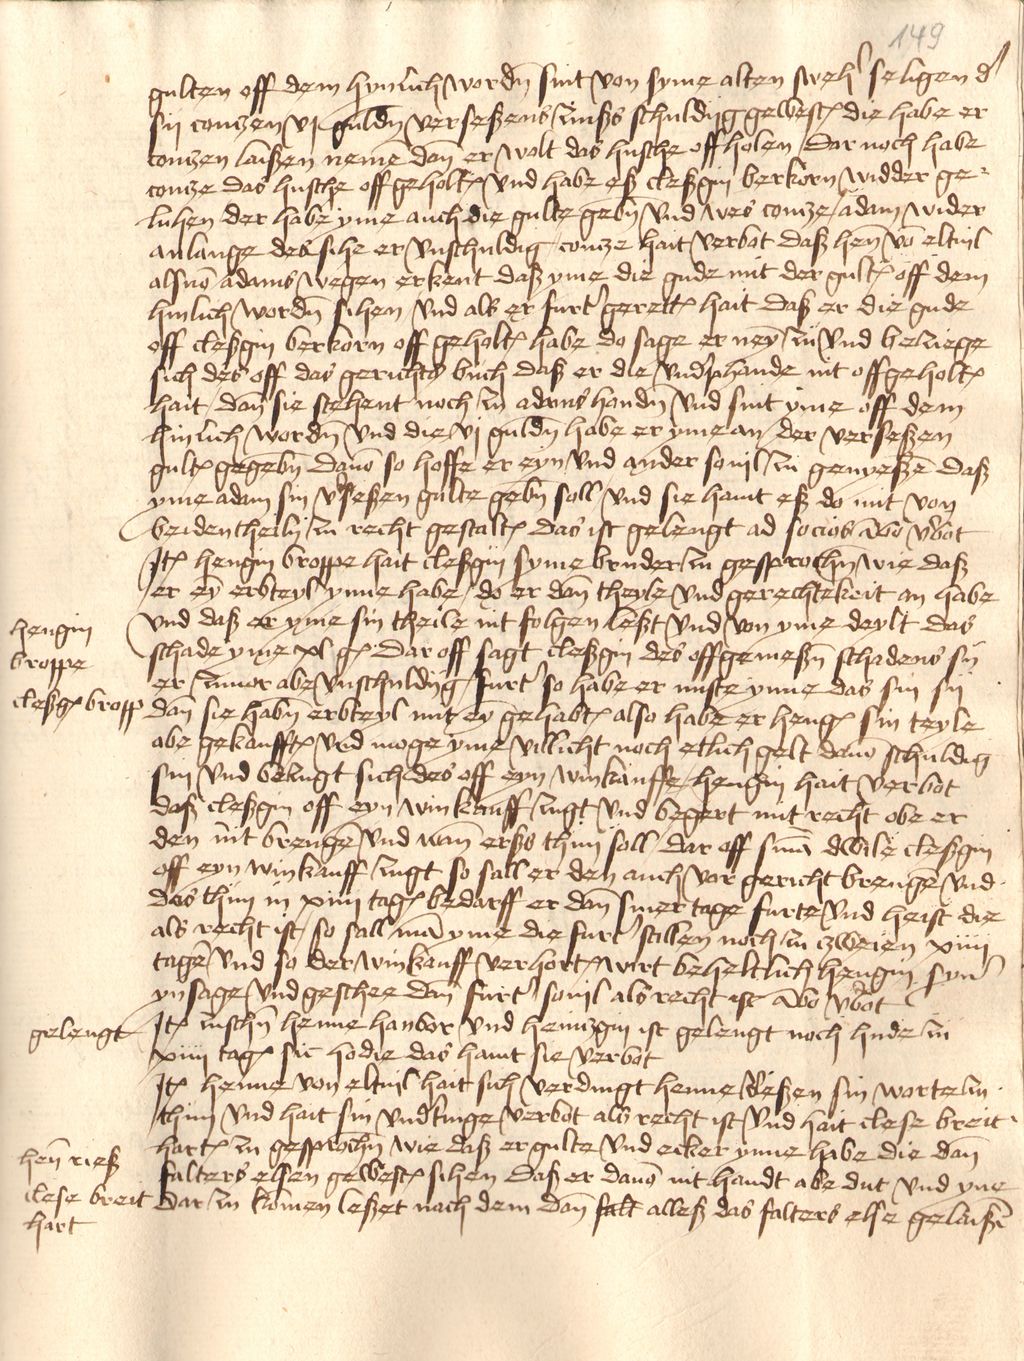 149
gulten off dem hynlich wordn sint von syme alten sweh' seligen d'
sij contzen vj guldn verseßens zinßs schuldijg gewest die habe er
contzen laißen neme dan er wolt das husche offholen Dar noch habe
contze das husche off geholt und habe eß cleßgin berkorn widder ge-
luhen der habe yme auch die gulte gebn und wes contze adam wider
anlange des sihe er unschuldig contze hait verbot daß hen vo eltvil
als vo adams wegen erkent daß yme die gude mit der gult off dem
hinlich wordn sihen und als er furt' gerett hait daß er die gude
off cleßgin berkorn off geholt habe do sage er ney zu und beziege
sich des off das gerichts buch daß er die und'phande nit off geholt
hait dan sie stehent noch in adams handn und sint yme off dem
hinlich wordn und die vj guldn habe er yme an der verseßen
gult gegebn davo so hoffe er eyn und ander sovil zu genyeßen daß
yme adam sin v'seßen gulte gebn soll und sie hant eß do mit von
beiden theiln zu recht gestalt das ist gelengt ad socios ambo v'bot
Jt hengin broppe hait cleßgin syme bruder zu gesprochn wie daß
er ey erbteyl ynne habe do er dan theyle und gerechtekeit an habe
und daß er yme sin theile nit folgen leßt und von yme deylt das
schade yme xl g Dar off sagt cleßgin des offgemeßn schadens sij
er zuvor abe unschuldijg furt' so habe er nuste ynne das sin sij
dan sie habn erbteyl mit ey gehabt also habe er heng sin teyle
abe gekaufft und moge yme villicht noch etlich gelt davo schuldig
sin und bezugt sich des off eyn winkauffe hengin hait verbot
daß cleßgin off eyn winkauff zugt und begert mit recht obe er
den nit brenge und wan erßs thun soll dar off sma dwile cleßgin
off eyn winkauff zugt so sall er den auch vor gericht brenge und
das thun in xiiij tag bedarff er dan siner tage furte und heist die
als recht ist so sall ma yme die furt' stillen noch zu zweien xiiij
tage und so der winkauff verhort wirt beheltlich hengin syn'
ynsage und geschee dan furt' sovil als recht ist ambo v'bot
Jt zuschn henne hanbor und heintzgin ist gelengt noch hude zu
xiiij tag sic hodie das hant sie verbot
Jt henne von eltvil hait sich verdingt henne rießen sin worte zu
thun und hait sin und'tinge verbot als recht ist und hait clese breit
hart zu gesprochn wie daß er gulte und ecker ynne habe die dan
falters elsen gewest sihen daß er davo nit handt abe dut und yne
dar zu komen leßet nach dem dan falt alleß das falters else gelaißn
hengin
broppe
cleßg bropp
gelengt
hen rieß
clese breit
hart